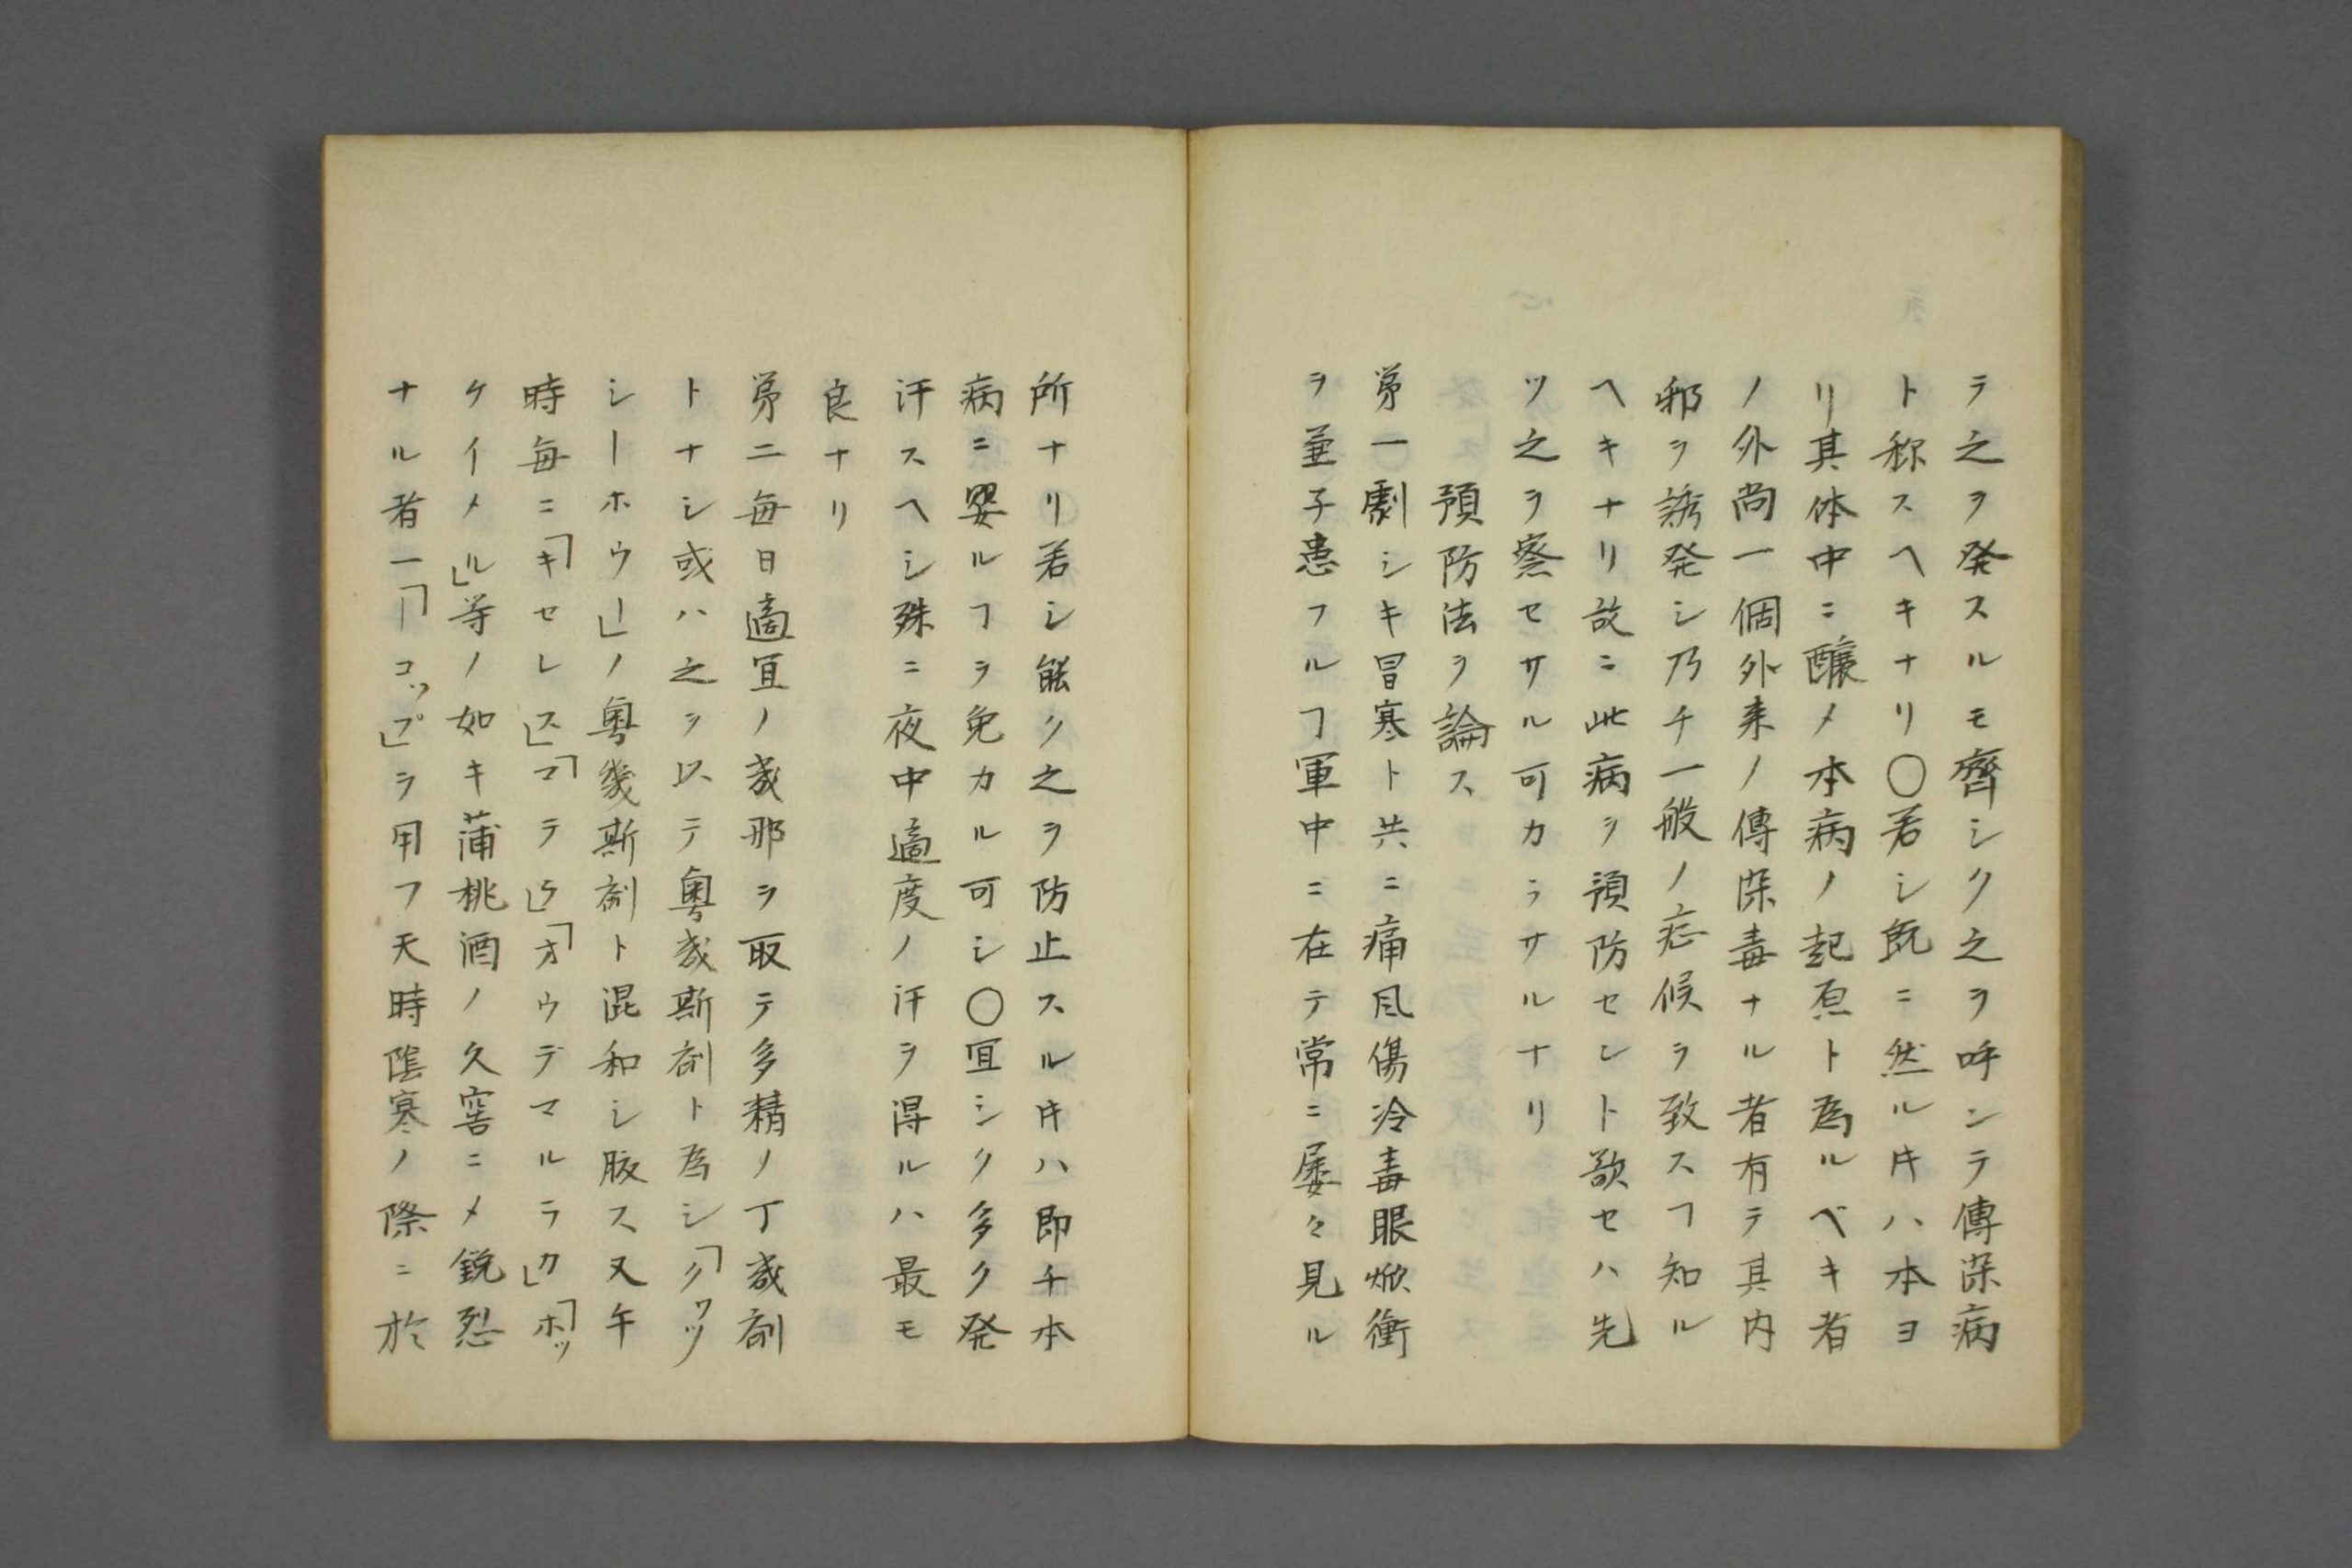 ラ之ヲ発スルモ齊シク之ヲ呼ンテ傳染病
ト称スヘキナリ〇若シ既ニ然ルキハ本ヨ
リ其体中ニ醸メ本病ノ起原ト為ルベキ者
ノ外尚一個外来ノ傳染毒ナル者有テ其内
邪ヲ誘発シ乃チ一般ノ症候ヲ致スヿ知ル
ヘキナリ故ニ此病ヲ預防セント欲セハ先
ツ之ヲ察セサル可カラサルナリ
預防法ヲ論ス
第一劇シキ冒寒ト共ニ痛風傷冷毒眼焮衝
ヲ並予患フルヿ軍中ニ在テ常ニ屡々見ル
所ナリ若シ能ク之ヲ防止スルキハ即チ本
病ニ嬰ルヿヲ免カル可シ〇宜シク多ク発
汗スヘシ殊ニ夜中適度ノ汗ヲ得ルハ最モ
良ナリ
第二毎日適宜ノ幾那ヲ取テ多精ノ丁幾剤
トナシ或ハ之ヲ以テ越幾斯剤ト為シ「クワツ
シーホウー」ノ越幾斯剤ト混和シ服ス又午
時毎ニ「キセレス」「マテラ」「オウデマルラカ」「ホツ
ケイメル」等ノ如キ蒲桃酒ノ久窖ニメ鋭烈
ナル者一「ーコップ」ヲ用フ天時陰寒ノ際ニ於